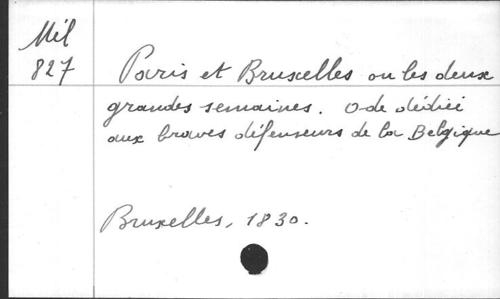 Mél
827
Paris et Bruxelles ou les deux
grandes semaines. Ode dédiée
aux braves défenseurs de la Belgique
Bruxelles, 1830.